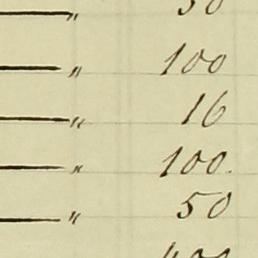 — " 50
— " 100
— " 16
— " 100.
— " 50